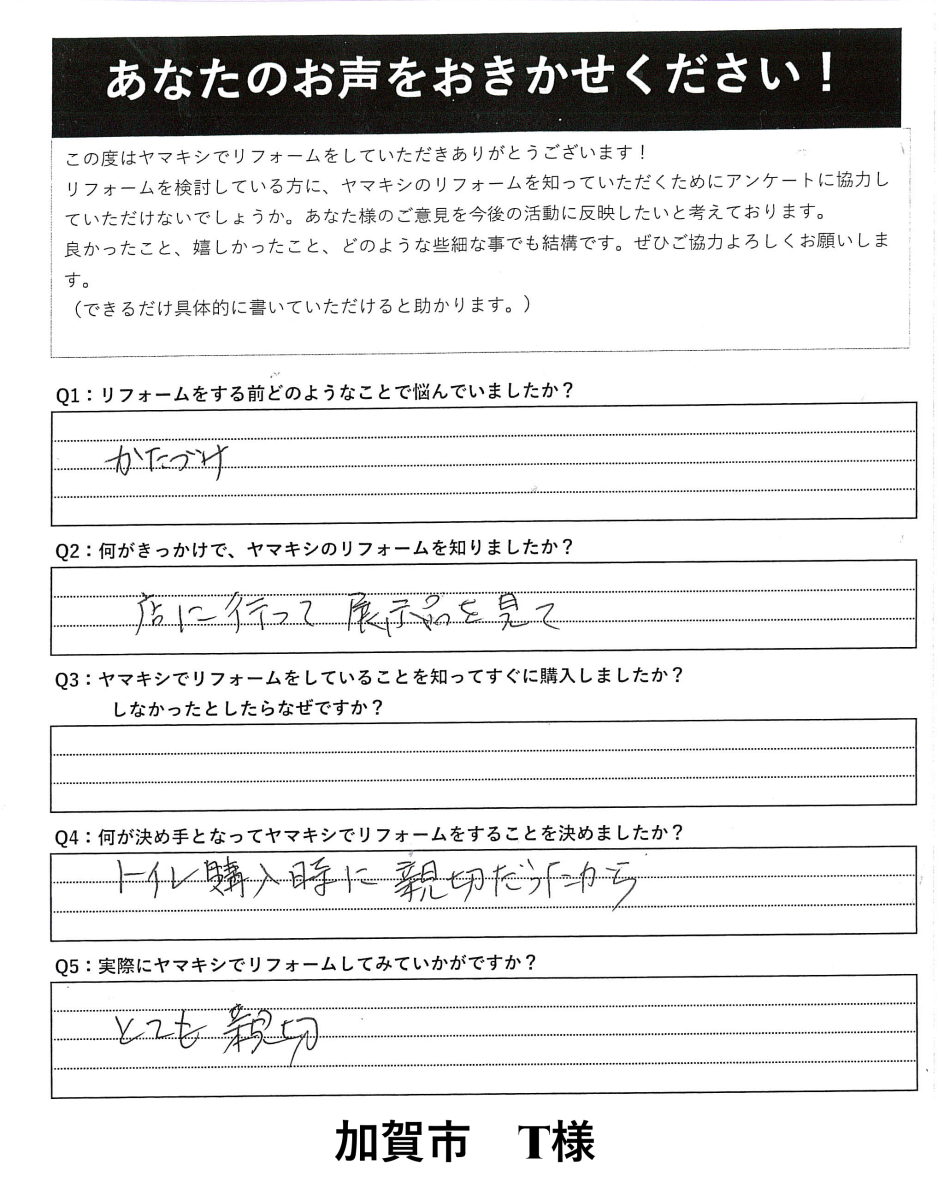 あなたのお声をおきかせください！
この度はヤマキシでリフォームをしていただきありがとうございます！
リフォームを検討している方に、ヤマキシのリフォームを知っていただくためにアンケートに協力し
ていただけないでしょうか。あなた様のご意見を今後の活動に反映したいと考えております。
良かったこと、嬉しかったこと、どのような些細な事でも結構です。ぜひご協力よろしくお願いしま
す。
（できるだけ具体的に書いていただけると助かります。）
Q1：リフォームをする前どのようなことで悩んでいましたか？
かたづけ
Q2：何がきっかけで、ヤマキシのリフォームを知りましたか？
店に行って 展示品を見て
Q3：ヤマキシでリフォームをしていることを知ってすぐに購入しましたか？
しなかったとしたらなぜですか？
Q4：何が決め手となってヤマキシでリフォームをすることを決めましたか？
トイレ購入時に 親切だったから
Q5：実際にヤマキシでリフォームしてみていかがですか？
とても 親切
加賀市　T様